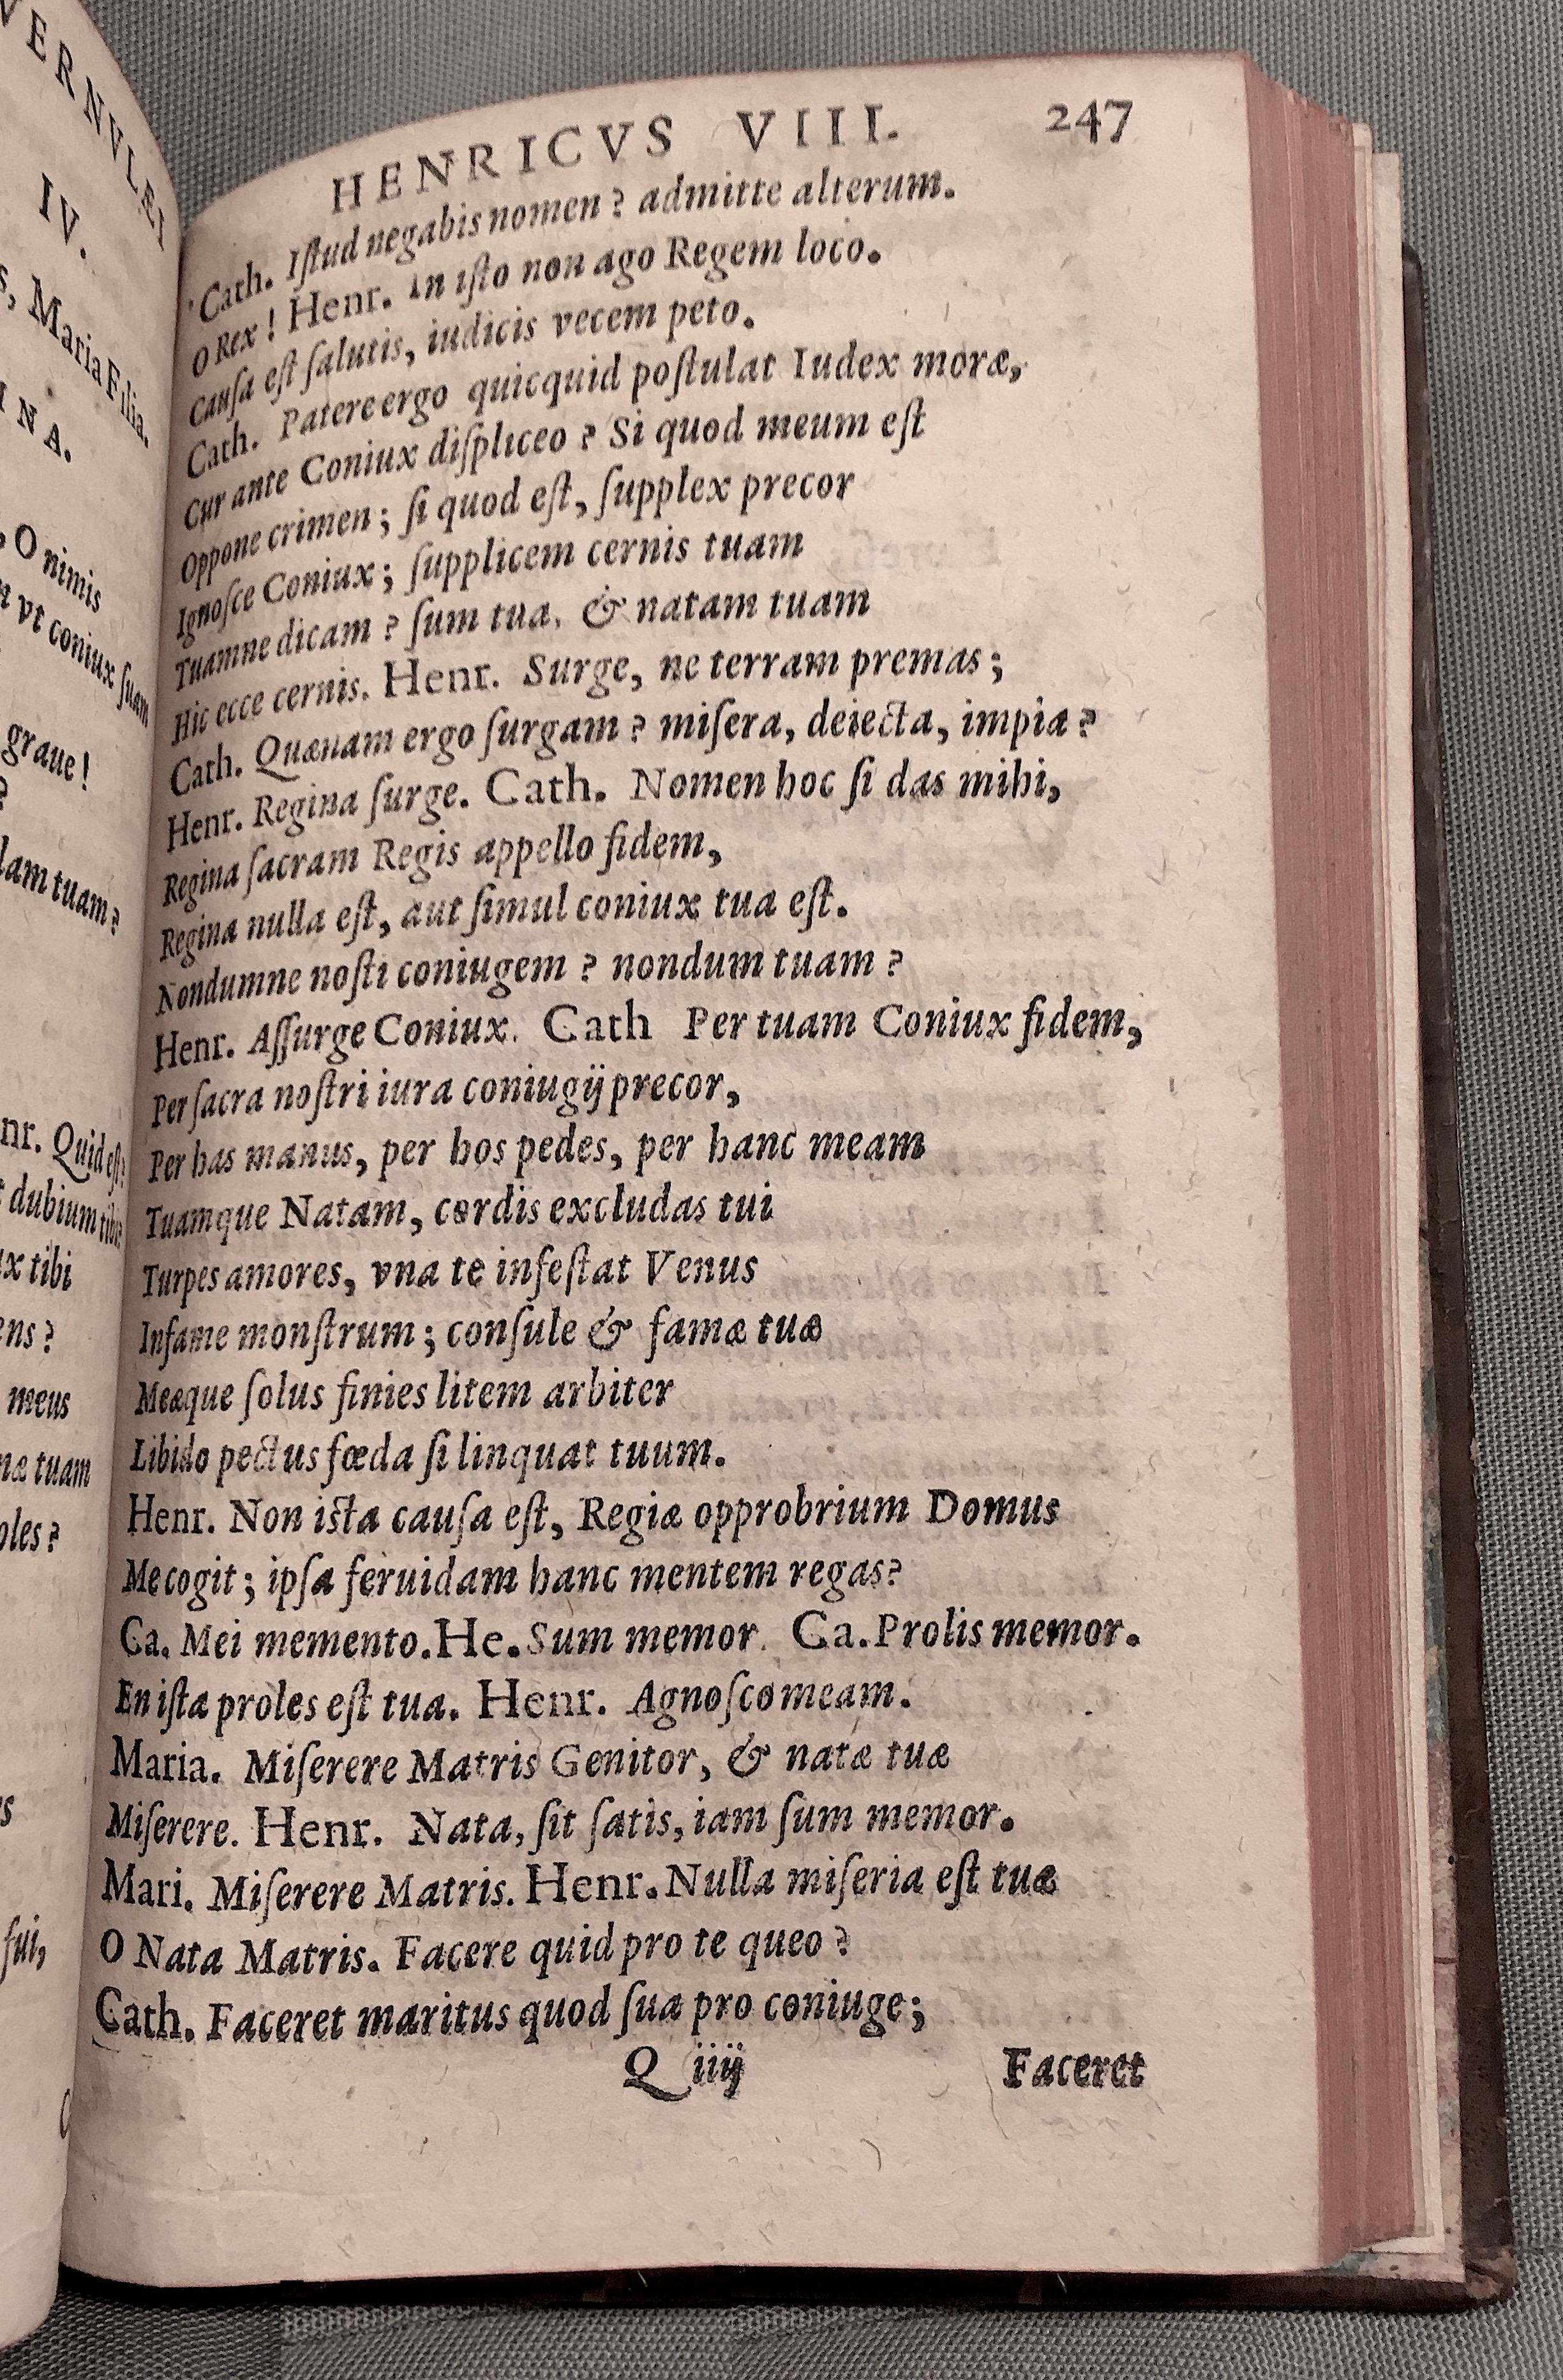 VERNVLÆI
IV.
s, Maria Filia.
INA.
, O nimis
n vt coniux ſuam
graue!
?
lam tuam?
nr. Quid eſt?
t dubium tibi
ux tibi
ens?
meus
næ tuam
oles?
s
ſui,
HENRICVS VIII. 247
Cath. Iſtud negabis nomen? admitte alterum.
O Rex! Henr. In iſto non ago Regem loco.
Cauſa eſt ſalutis, iudicis vecem peto.
Cath. Patere ergo quicquid poſtulat Iudex moræ,
Cur ante Coniux diſpliceo? Si quod meum eſt
Oppone crimen; ſi quod eſt, ſupplex precor
Ignoſce Coniux; ſupplicem cernis tuam
Tuamne dicam? ſum tua. & natam tuam
Hic ecce cernis. Henr. Surge, ne terram premas;
Cath. Quænam ergo ſurgam? miſera, deiecta, impia?
Henr. Regina ſurge. Cath. Nomen hoc ſi das mihi,
Regina ſacram Regis appello fidem,
Regina nulla eſt, aut ſimul coniux tua eſt.
Nondumne noſti coniugem? nondum tuam?
Henr. Aſſurge Coniux. Cath Per tuam Coniux fidem,
Per ſacra noſtri iura coniugij precor,
Per has manus, per hos pedes, per hanc meam
Tuamque Natam, cordis excludas tui
Turpes amores, vna te infeſtat Venus
Infame monſtrum; conſule & famæ tuæ
Meæque ſolus finies litem arbiter
Libido pectus fœda ſi linquat tuum.
Henr. Non iſta cauſa eſt, Regiæ opprobrium Domus
Me cogit; ipſa feruidam hanc mentem regas?
Ca. Mei memento. He. Sum memor. Ca. Prolis memor.
En iſta proles eſt tua. Henr. Agnoſco meam.
Maria. Miſerere Matris Genitor, & natæ tuæ
Miſerere. Henr. Nata, ſit ſatis, iam ſum memor.
Mari. Miſerere Matris. Henr. Nulla miſeria eſt tuæ
O Nata Matris. Facere quid pro te queo?
Cath. Faceret maritus quod ſua pro coniuge;
Q iiij Faceret